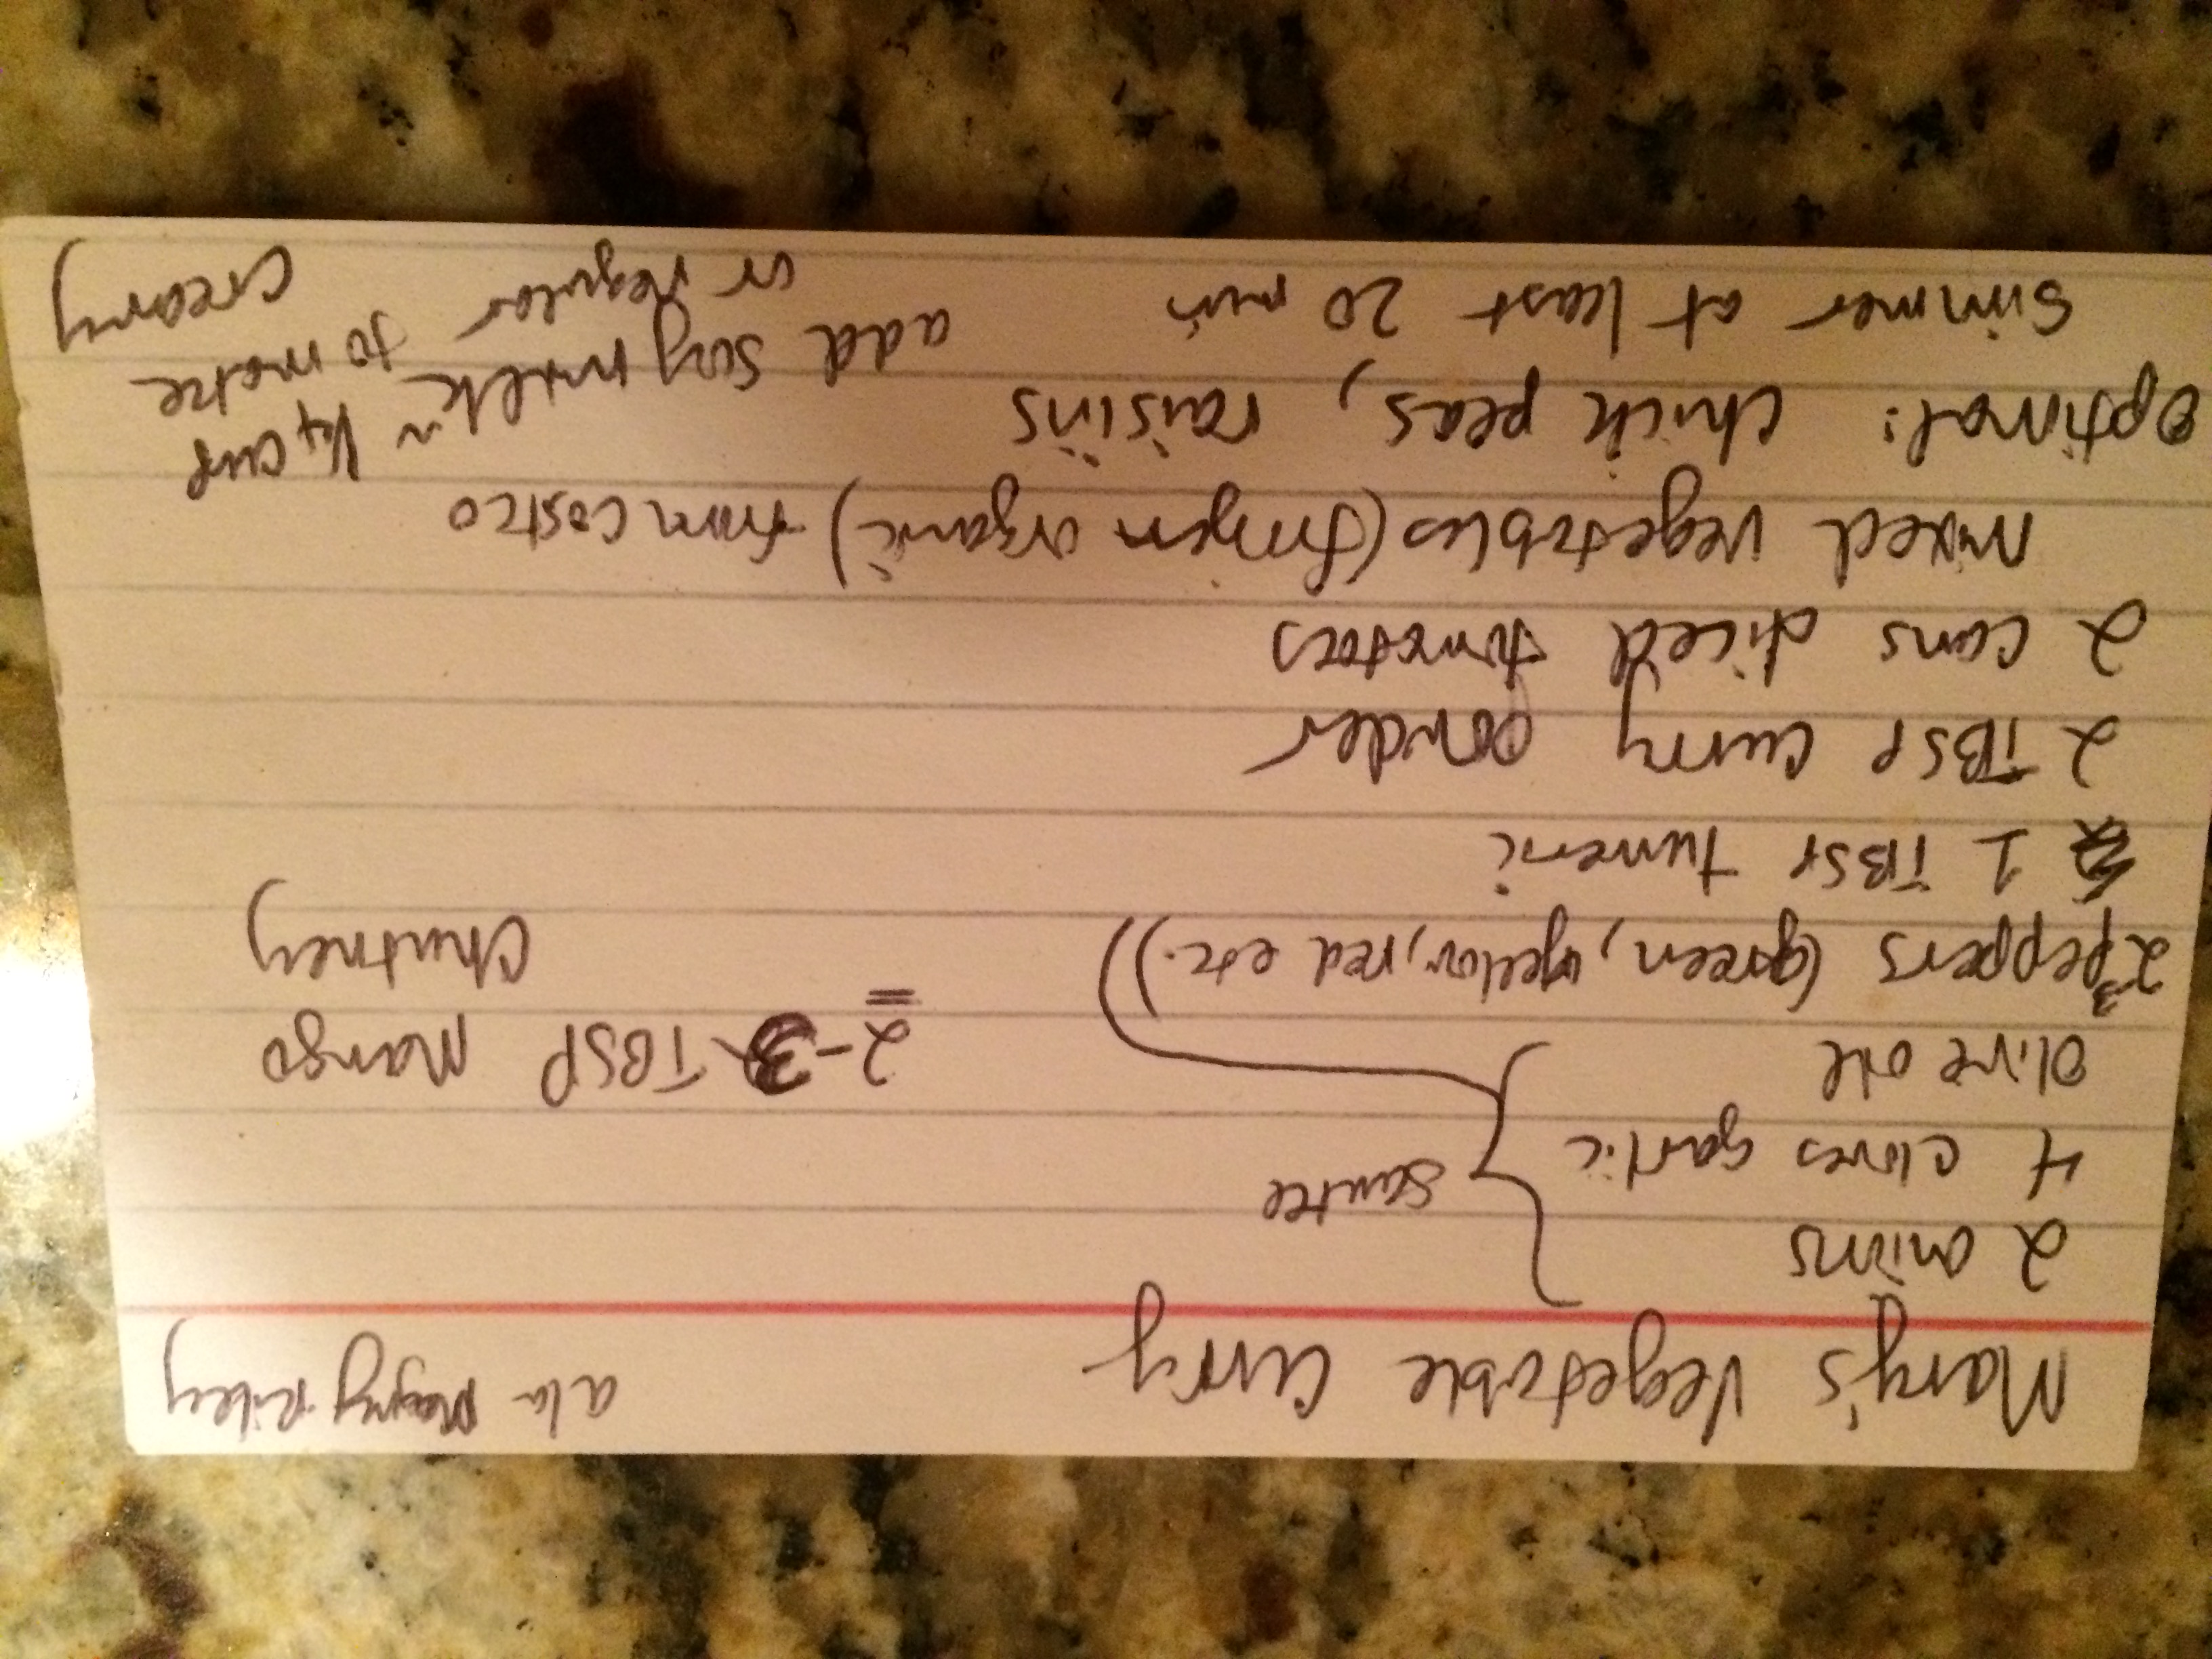 Mary's Vegetable Curry a la Mary Riley
2 onions
4 cloves garlic sautee
olive oil
2-3 TBSP Mango
Chutney
2-3 peppers (green, yellow, red etc.)
1 TBSP tumeric
2 TBSP curry powder
2 cans diced tomatoes
mixed vegetables (frozen organic) from costco
optional: chick peas, raisins
simmer at least 20 min
add soy milk ~ 1/4 cup
or regular to make
creamy